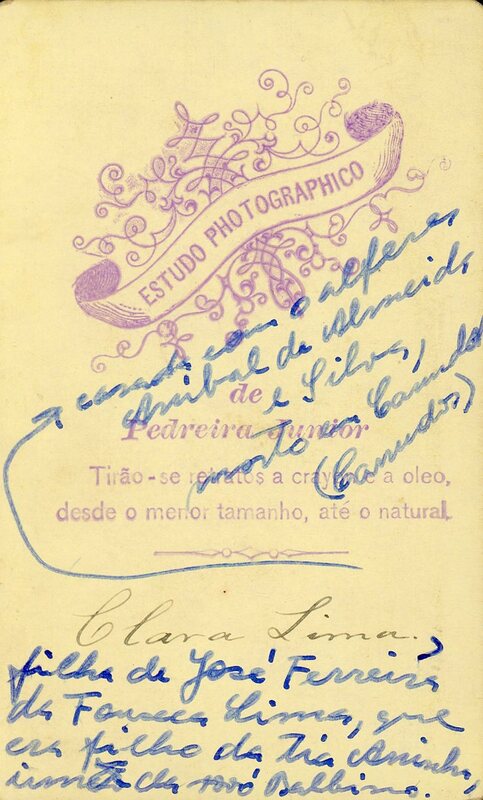 ESTUDO PHOTOGRAPHICO
casada com o alferes
Anibal de Almeida
e Silva,
morto em Canudos
(Canudos)
de
Pedreira Junior
Tirão-se retratos a crayon e a oleo,
desde o menor tamanho, até o natural.
Clara Lima,
filha de José Ferreira
da Fonseca Lima, que
era filho da tia Aninha,
irmã da avó Balbina.